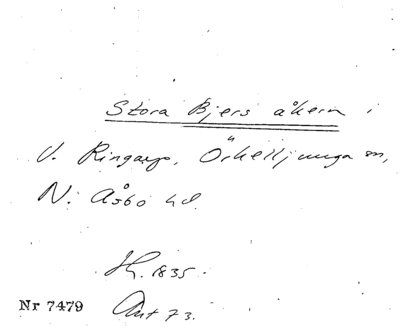 Stora Bjers åkern i
V. Ringarp, Örkelljunga sn,
N. Åsbo hd.
H. 1835.
Nr 7479 Akt 73.